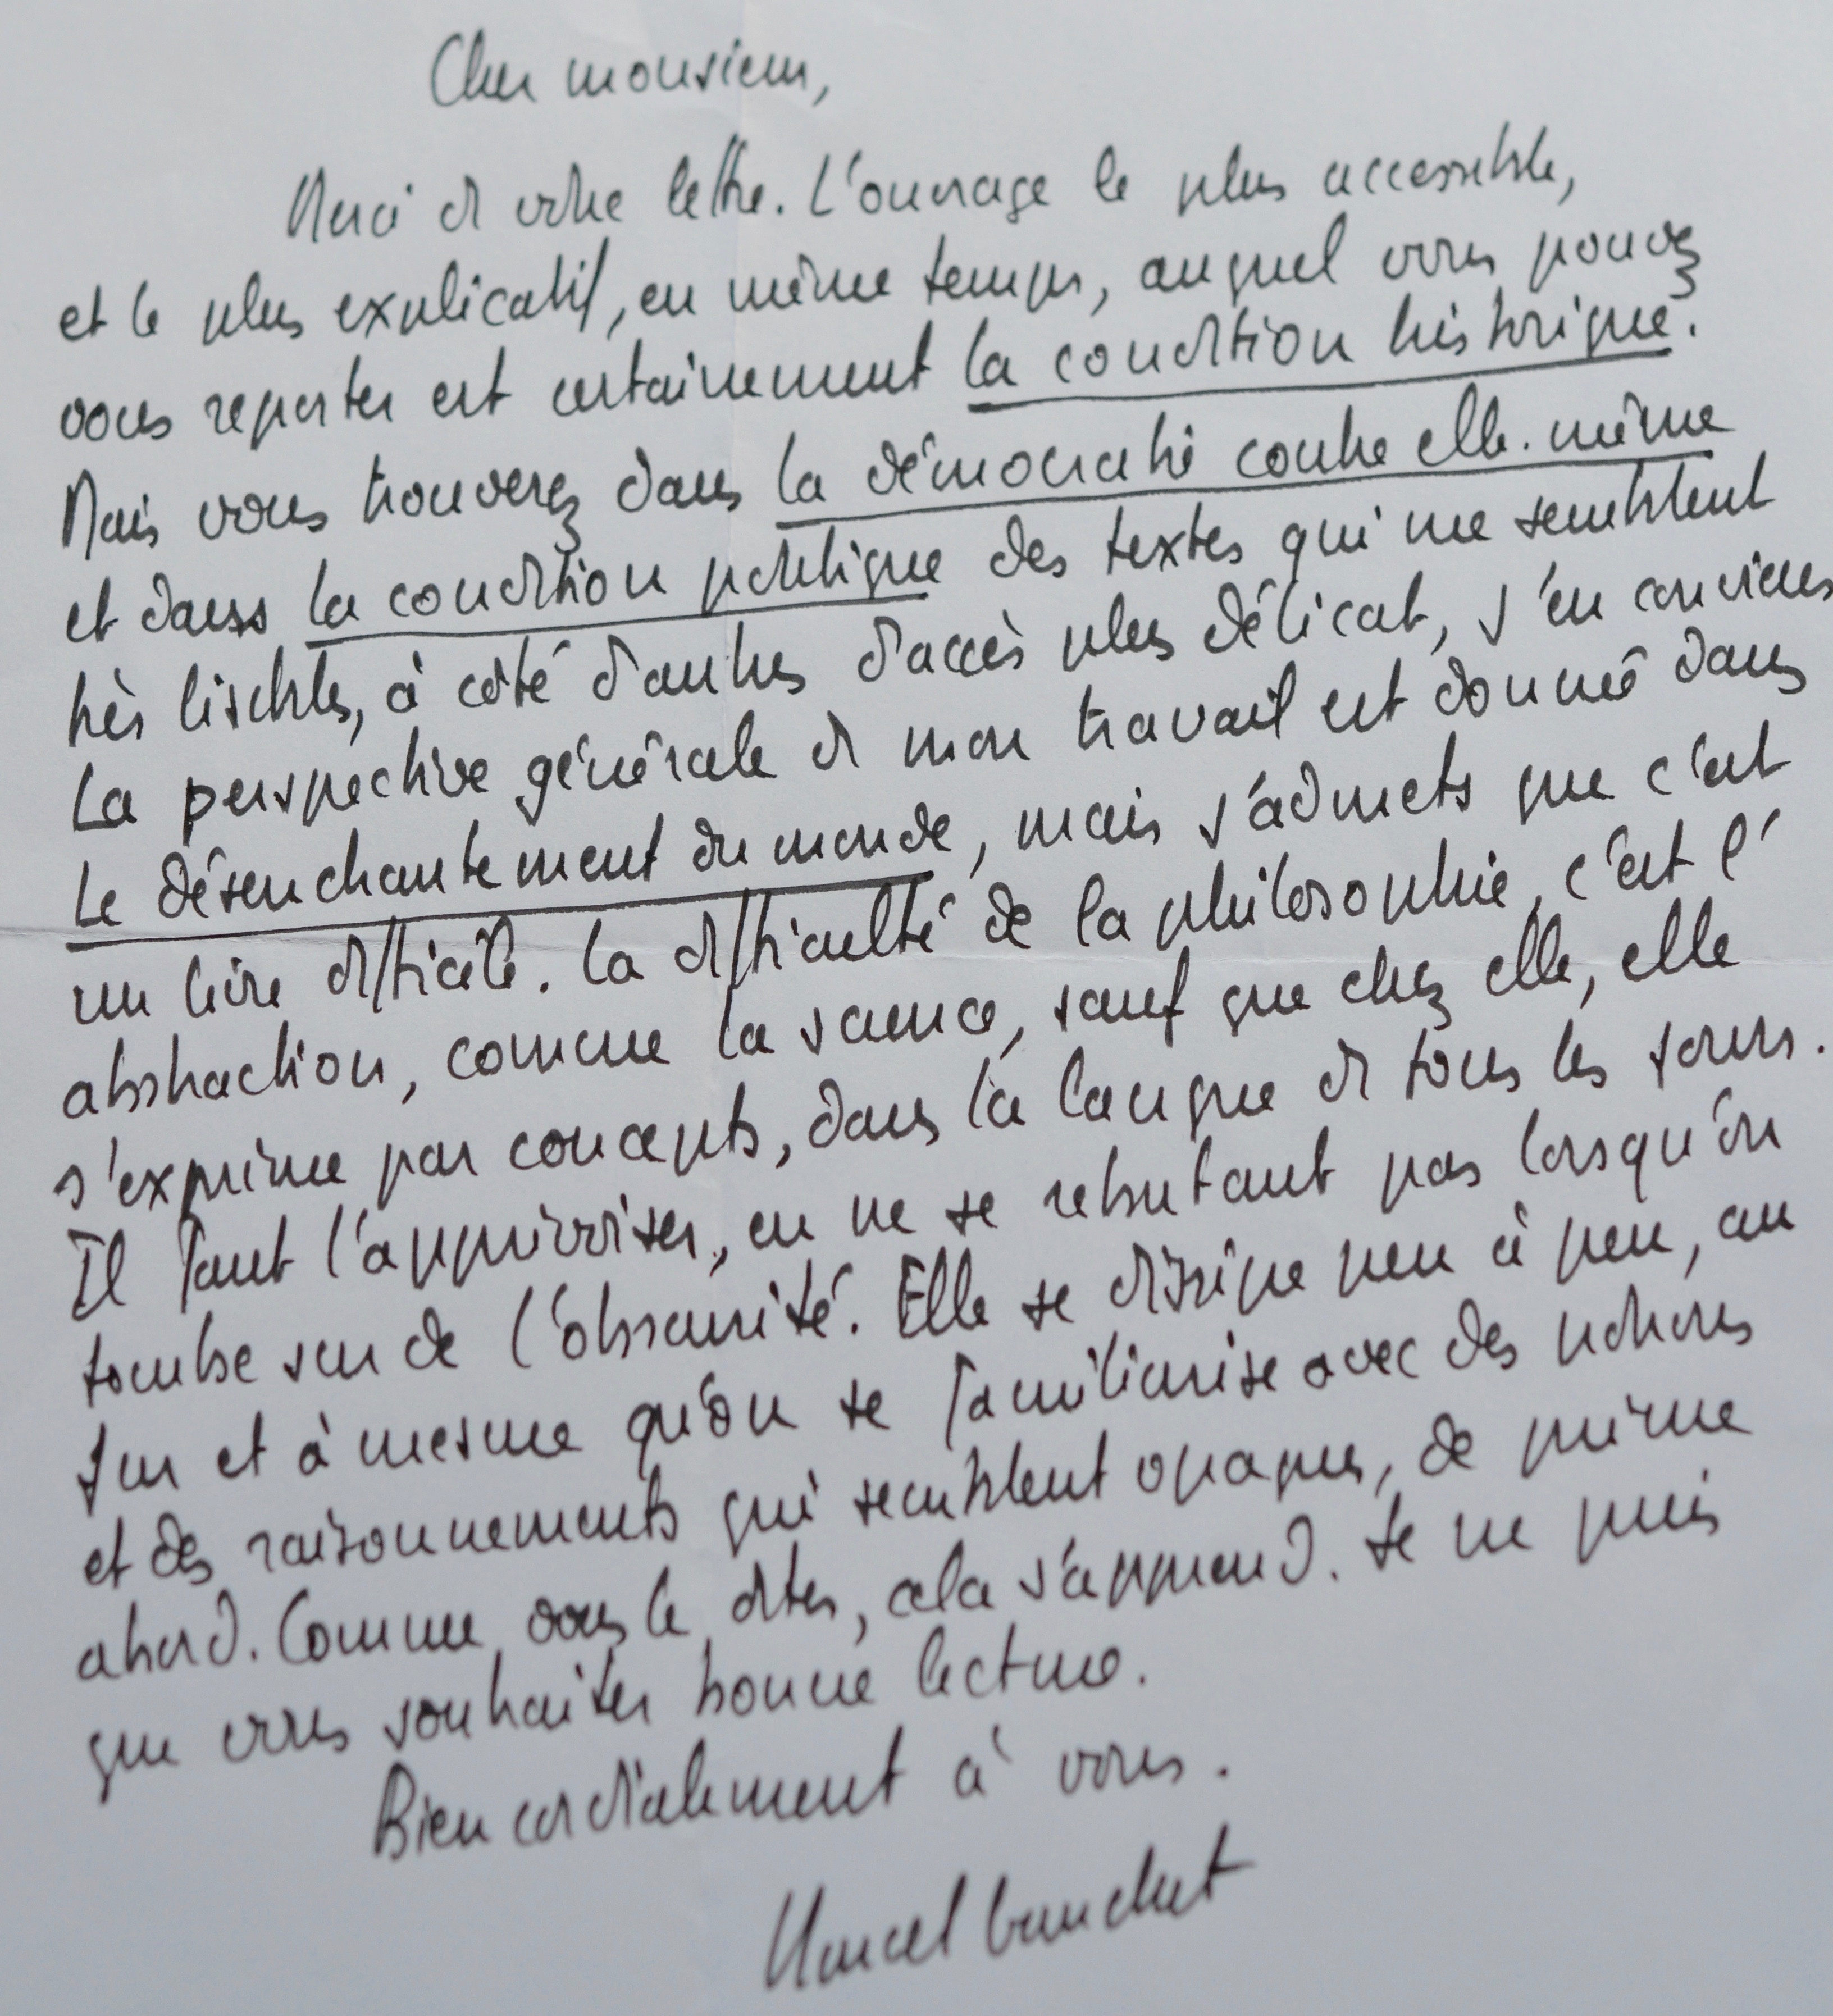 Cher monsieur,
Merci de votre lettre. L'ouvrage le plus accessible,
et le plus explicatif, en même temps, auquel vous pouvez
vous reporter est certainement la condition historique.
Mais vous trouverez dans la démocratie contre elle-même
et dans la condition politique des textes qui me semblent
très lisibles, à côté d'autres d'accès plus délicat, j'en conviens
La perspective générale de mon travail est donné dans
Le désenchantement du monde, mais j'admets que c'est
un livre difficile. La difficulté de la philosophie, c'est l'
abstraction, comme la science, sauf que chez elle, elle
s'exprime par concepts, dans la langue de tous les jours.
Il faut l'apprivoiser, en ne se rebutant pas lorsqu'on
tombe sur de l'obscurité. Elle se dissipe peu à peu, au
fur et à mesure qu'on se familiarise avec des notions
et des raisonnements qui semblent opaques, de prime
abord. Comme vous le dites, cela s'apprend. Je ne puis
que vous souhaiter bonne lecture.
Bien cordialement à vous.
Marcel Gauchet